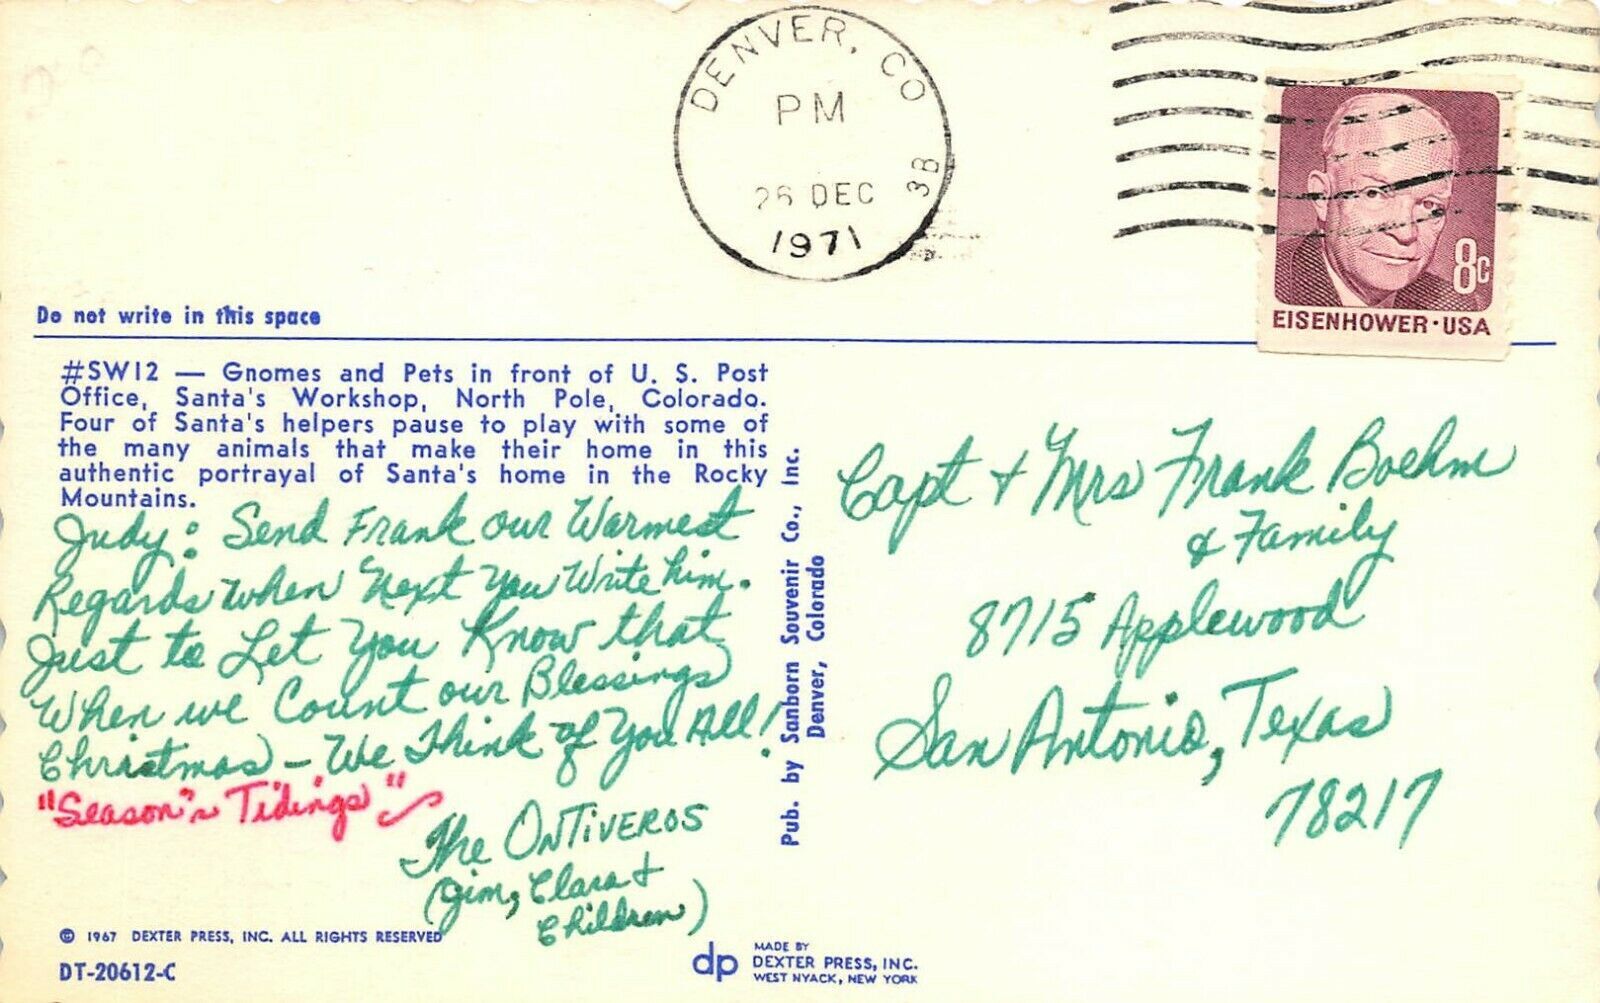 DENVER, CO
PM
26 DEC
1971
3B
8c
EISENHOWER·USA
Do not write in this space
#SW12 — Gnomes and Pets in front of U. S. Post
Office, Santa's Workshop, North Pole, Colorado.
Four of Santa's helpers pause to play with some of
the many animals that make their home in this
authentic portrayal of Santa's home in the Rocky
Mountains.
Judy: Send Frank our Warmest
Regards when next you Write him.
Just to Let You Know that
When we Count our Blessings
Christmas – We Think of You All!
"Season's Tidings"
The ONTIVEROS
(Jim, Clara &
Children)
Pub. by Sanborn Souvenir Co., Inc.
Denver, Colorado
Capt + Mrs Frank Boehm
& Family
8715 Applewood
San Antonio, Texas
78217
© 1967 DEXTER PRESS, INC. ALL RIGHTS RESERVED
DT-20612-C
dp
MADE BY
DEXTER PRESS, INC.
WEST NYACK, NEW YORK